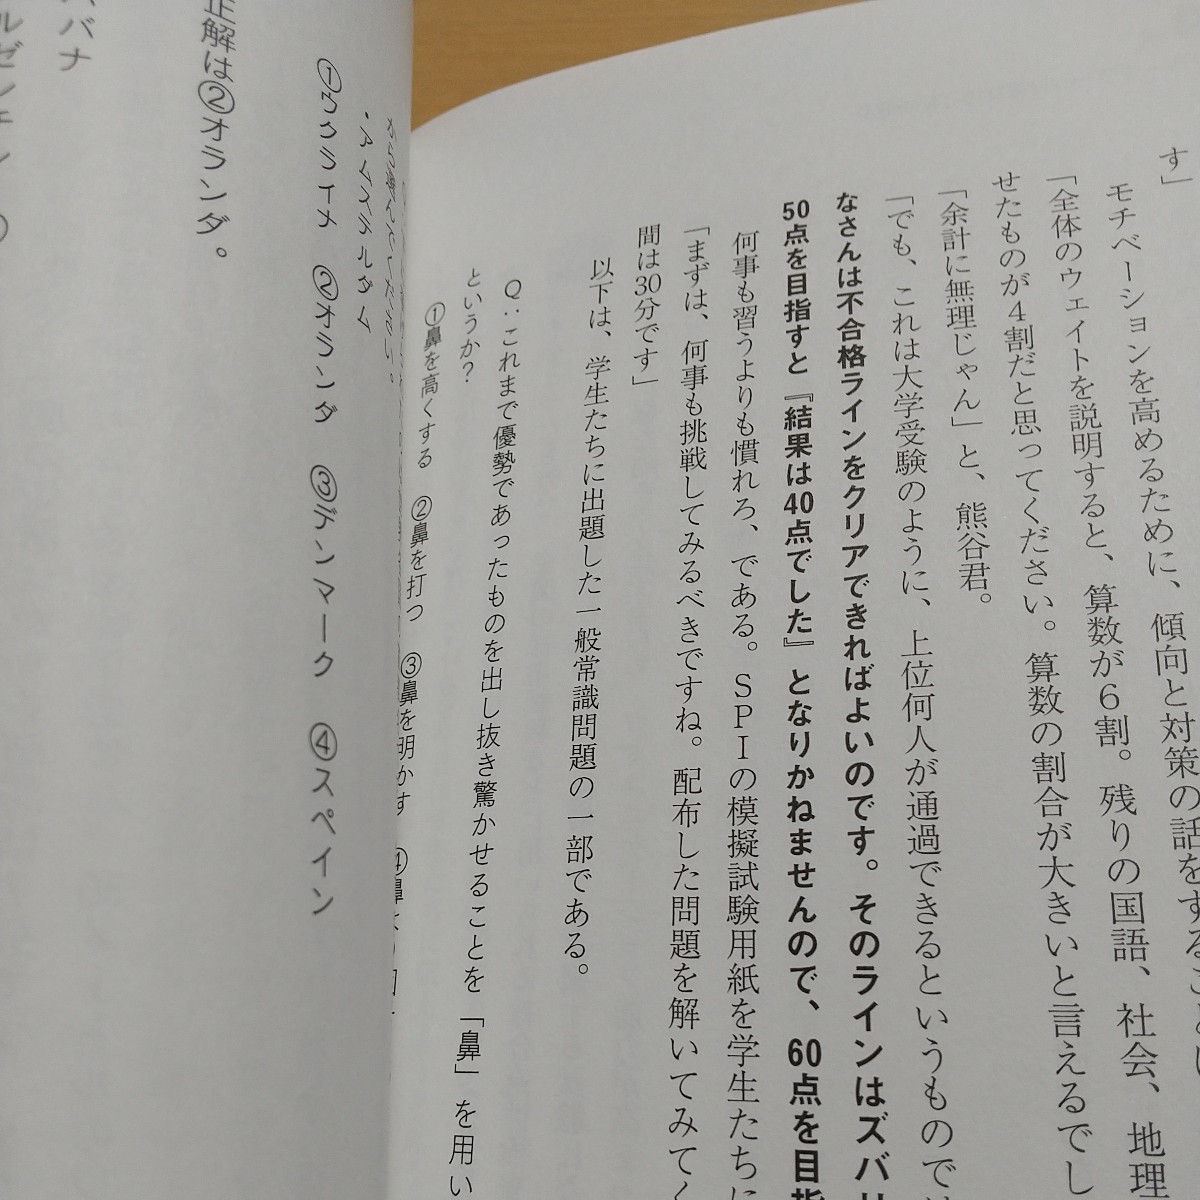 す」
モチベーションを高めるために、傾向と対策の話をすること
「全体のウェイトを説明すると、算数が6割。残りの国語、社会、地理
せたものが4割だと思ってください。算数の割合が大きいと言えるでし
「余計に無理じゃん」と、熊谷君。
「でも、これは大学受験のように、上位何人が通過できるというものでは
なさんは不合格ラインをクリアできればよいのです。そのラインはズバリ
50点を目指すと『結果は40点でした』となりかねませんので、60点を目指
何事も習うよりも慣れろ、である。SPIの模擬試験用紙を学生たちに
「まずは、何事も挑戦してみるべきですね。配布した問題を解いてみてく
間は30分です」
以下は、学生たちに出題した一般常識問題の一部である。
Q:これまで優勢であったものを出し抜き驚かせることを「鼻」を用い
というか?
①鼻を高くする ②鼻を打つ ③鼻を明かす ④鼻
・アムステルダム
①ウクライナ ②オランダ ③デンマーク ④スペイン
正解は②オランダ。
バナ